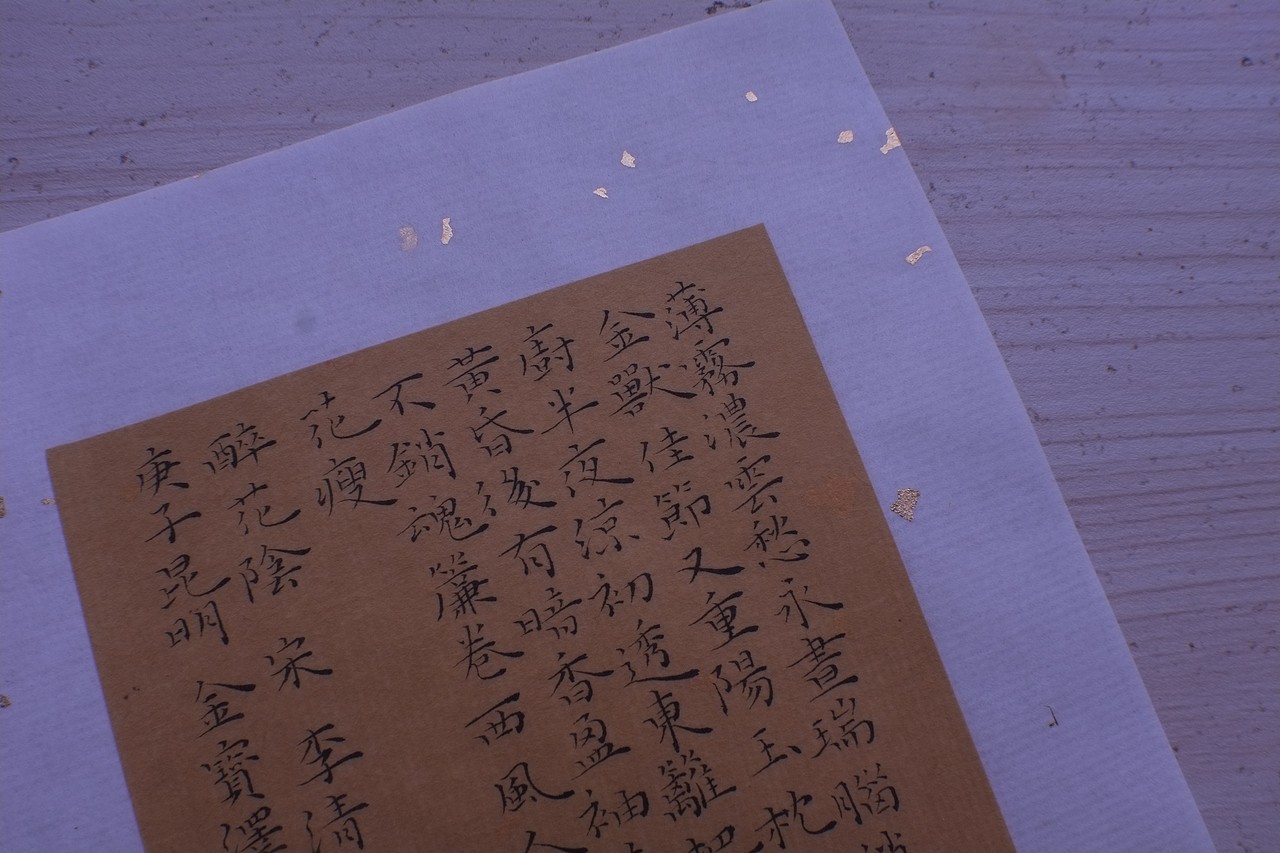 薄霧濃雲愁永晝瑞腦
金獸佳節又重陽玉枕
廚半夜涼初透東籬把
黃昏後有暗香盈袖
不銷魂簾卷西風
花瘦
醉花陰 宋 李清
庚子昆明 金寶